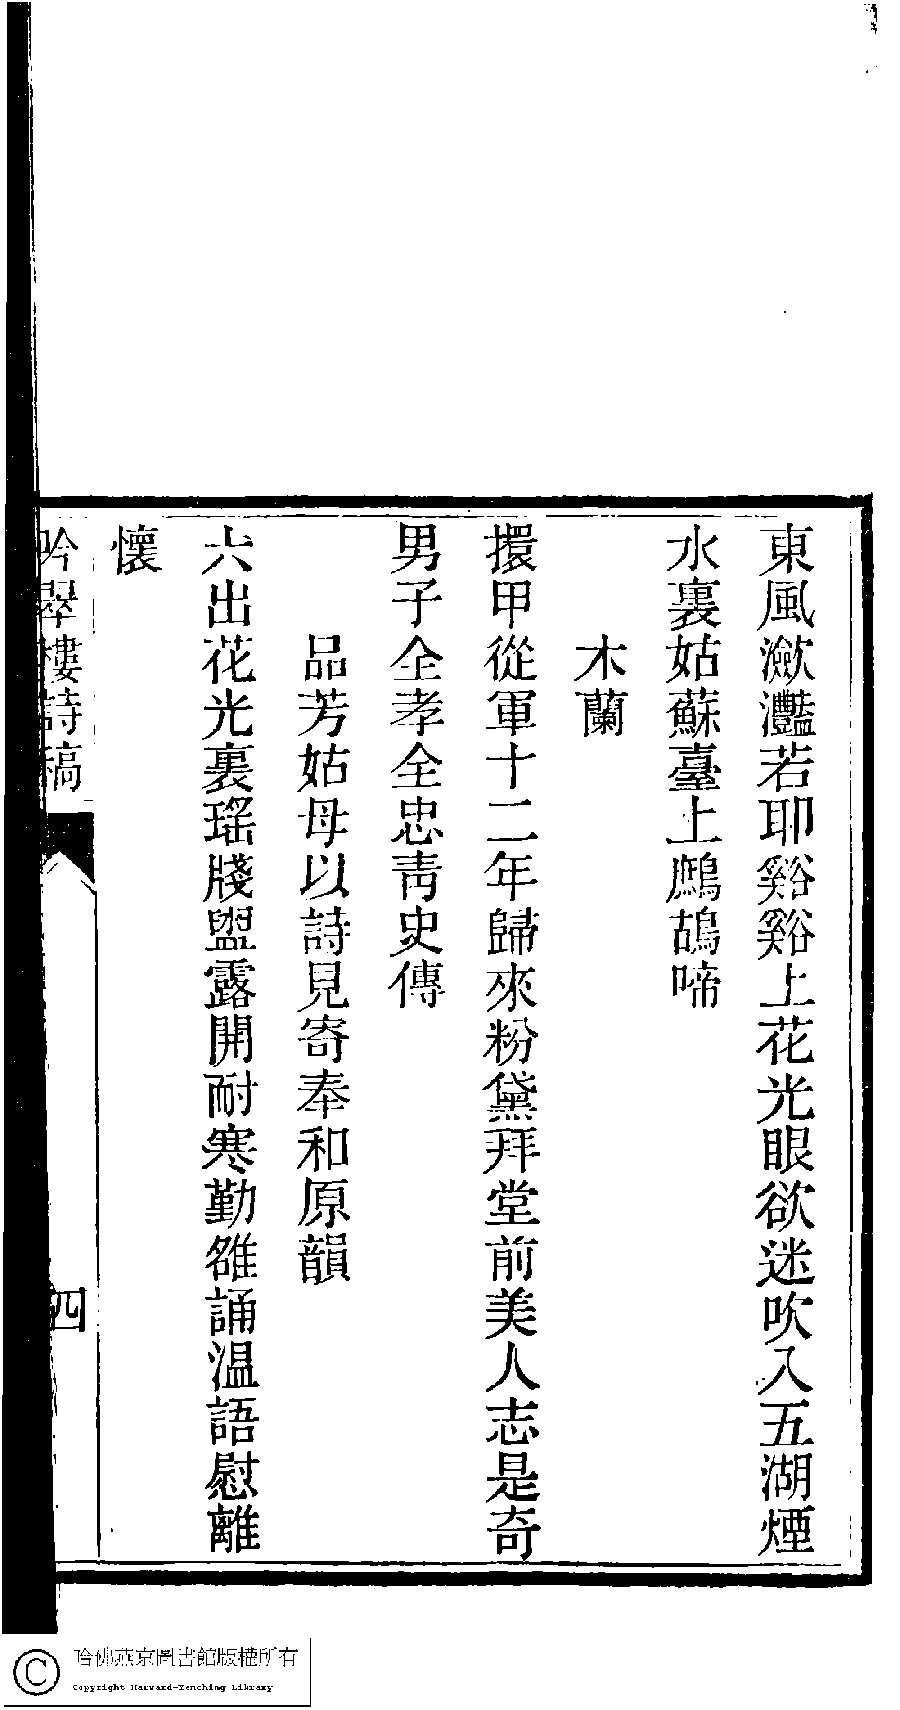 東風瀲灩若耶谿谿上花光眼欲迷吹入五湖煙
水裏姑蘇臺上鷓鴣啼
木蘭
擐甲從軍十二年歸來粉黛拜堂前美人志是奇
男子全孝全忠靑史傳
品芳姑母以詩見寄奉和原韻
六出花光裏瑤牋盥露開耐寒勤雒誦温語慰離
懷
吟翠樓詩稿
四
哈佛燕京圖書館版權所有
Copyright Harvard-Yenching Library